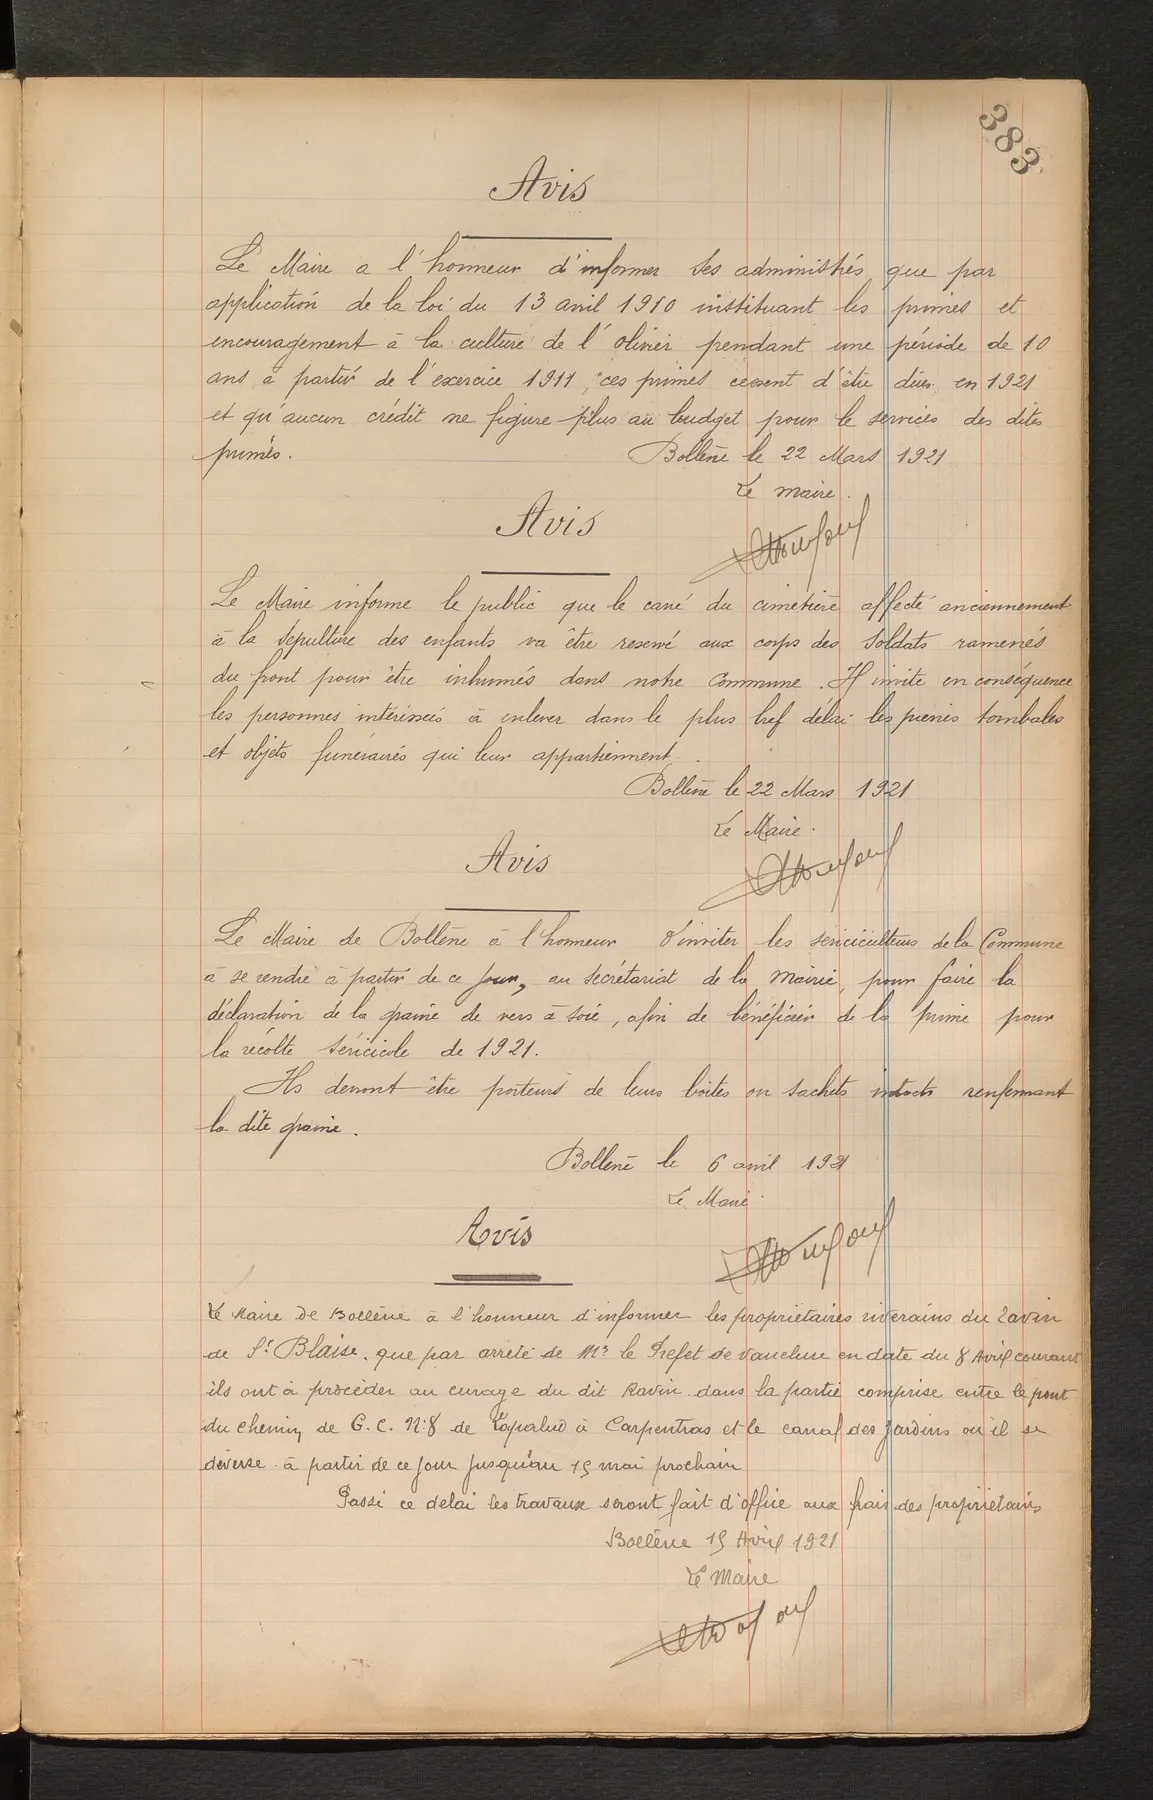 383
Avis
Le Maire a l'honneur d'informer ses administrés que par
application de la loi du 13 avril 1910 instituant les primes et
encouragement à la culture de l'olivier pendant une période de 10
ans à partir de l'exercice 1911, ces primes cessent d'être dûes en 1921
et qu'aucun crédit ne figure plus au budget pour le services des dites
primes.
Bollène le 22 Mars 1921
Le maire.
Avis
Le Maire informe le public que le carré du cimetière affecté anciennement
à la sépulture des enfants va être reservé aux corps des soldats ramenés
du front pour être inhumés dans notre Commune. Il invite en conséquence
les personnes intéressées à enlever dans le plus bref délai les pierres tombales
et objets funéraires qui leur appartiennent.
Bollène le 22 Mars 1921
Le Maire.
Avis
Le Maire de Bollène à l'honneur d'inviter les sériciculteurs de la Commune
à se rendre à partir de ce jour, au secrétariat de la Mairie, pour faire la
déclaration de la graine de vers à soie, afin de bénéficier de la prime pour
la récolte séricicole de 1921.
Ils devront être porteurs de leurs boites ou sachets intacts renfermant
la dite graine.
Bollène le 6 avril 1921
Le Maire.
Avis
Le Maire de Bollène à l'honneur d'informer les propriétaires riverains du Ravin
de St Blaise. que par arrêté de Mr le Préfet de Vaucluse en date du 8 Avril courant
ils ont à procéder au curage du dit Ravin dans la partie comprise entre le pont
du chemin de G. C. N:8 de Lapalud à Carpentras et le canal des jardins où il se
déverse à partir de ce jour jusqu'au 15 mai prochain
Passé ce delai les travaux seront fait d'office aux frais des propriétaires
Bollène 15 Avril 1921
Le Maire